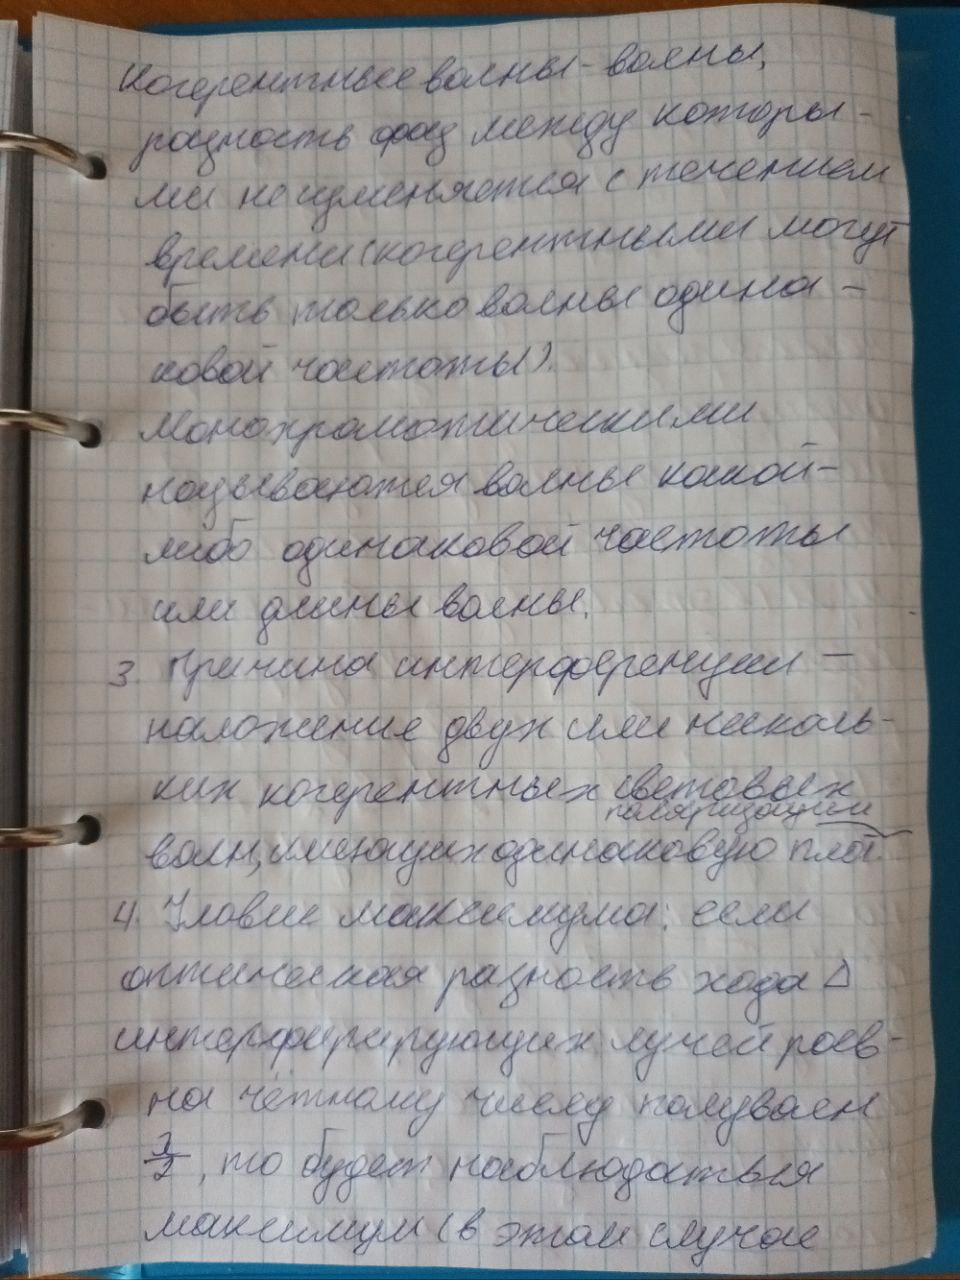 Когерентные волны - волны,
разность фаз между которы-
ми не изменяется с течением
времени (когерентными могут
быть только волны одина-
ковой частоты).
Монохроматическими
называются волны какой-
либо одинаковой частоты
или длины волны.
3. Причина интерференции -
наложение двух или несколь-
ких когерентных световых
поляризации
волн, имеющих одинаковую плос.
4. Условие максимума: если
оптическая разность хода Δ
интерферирующих лучей рав-
на чётному числу полуволн
λ/2, то будет наблюдаться
максимум (в этом случае